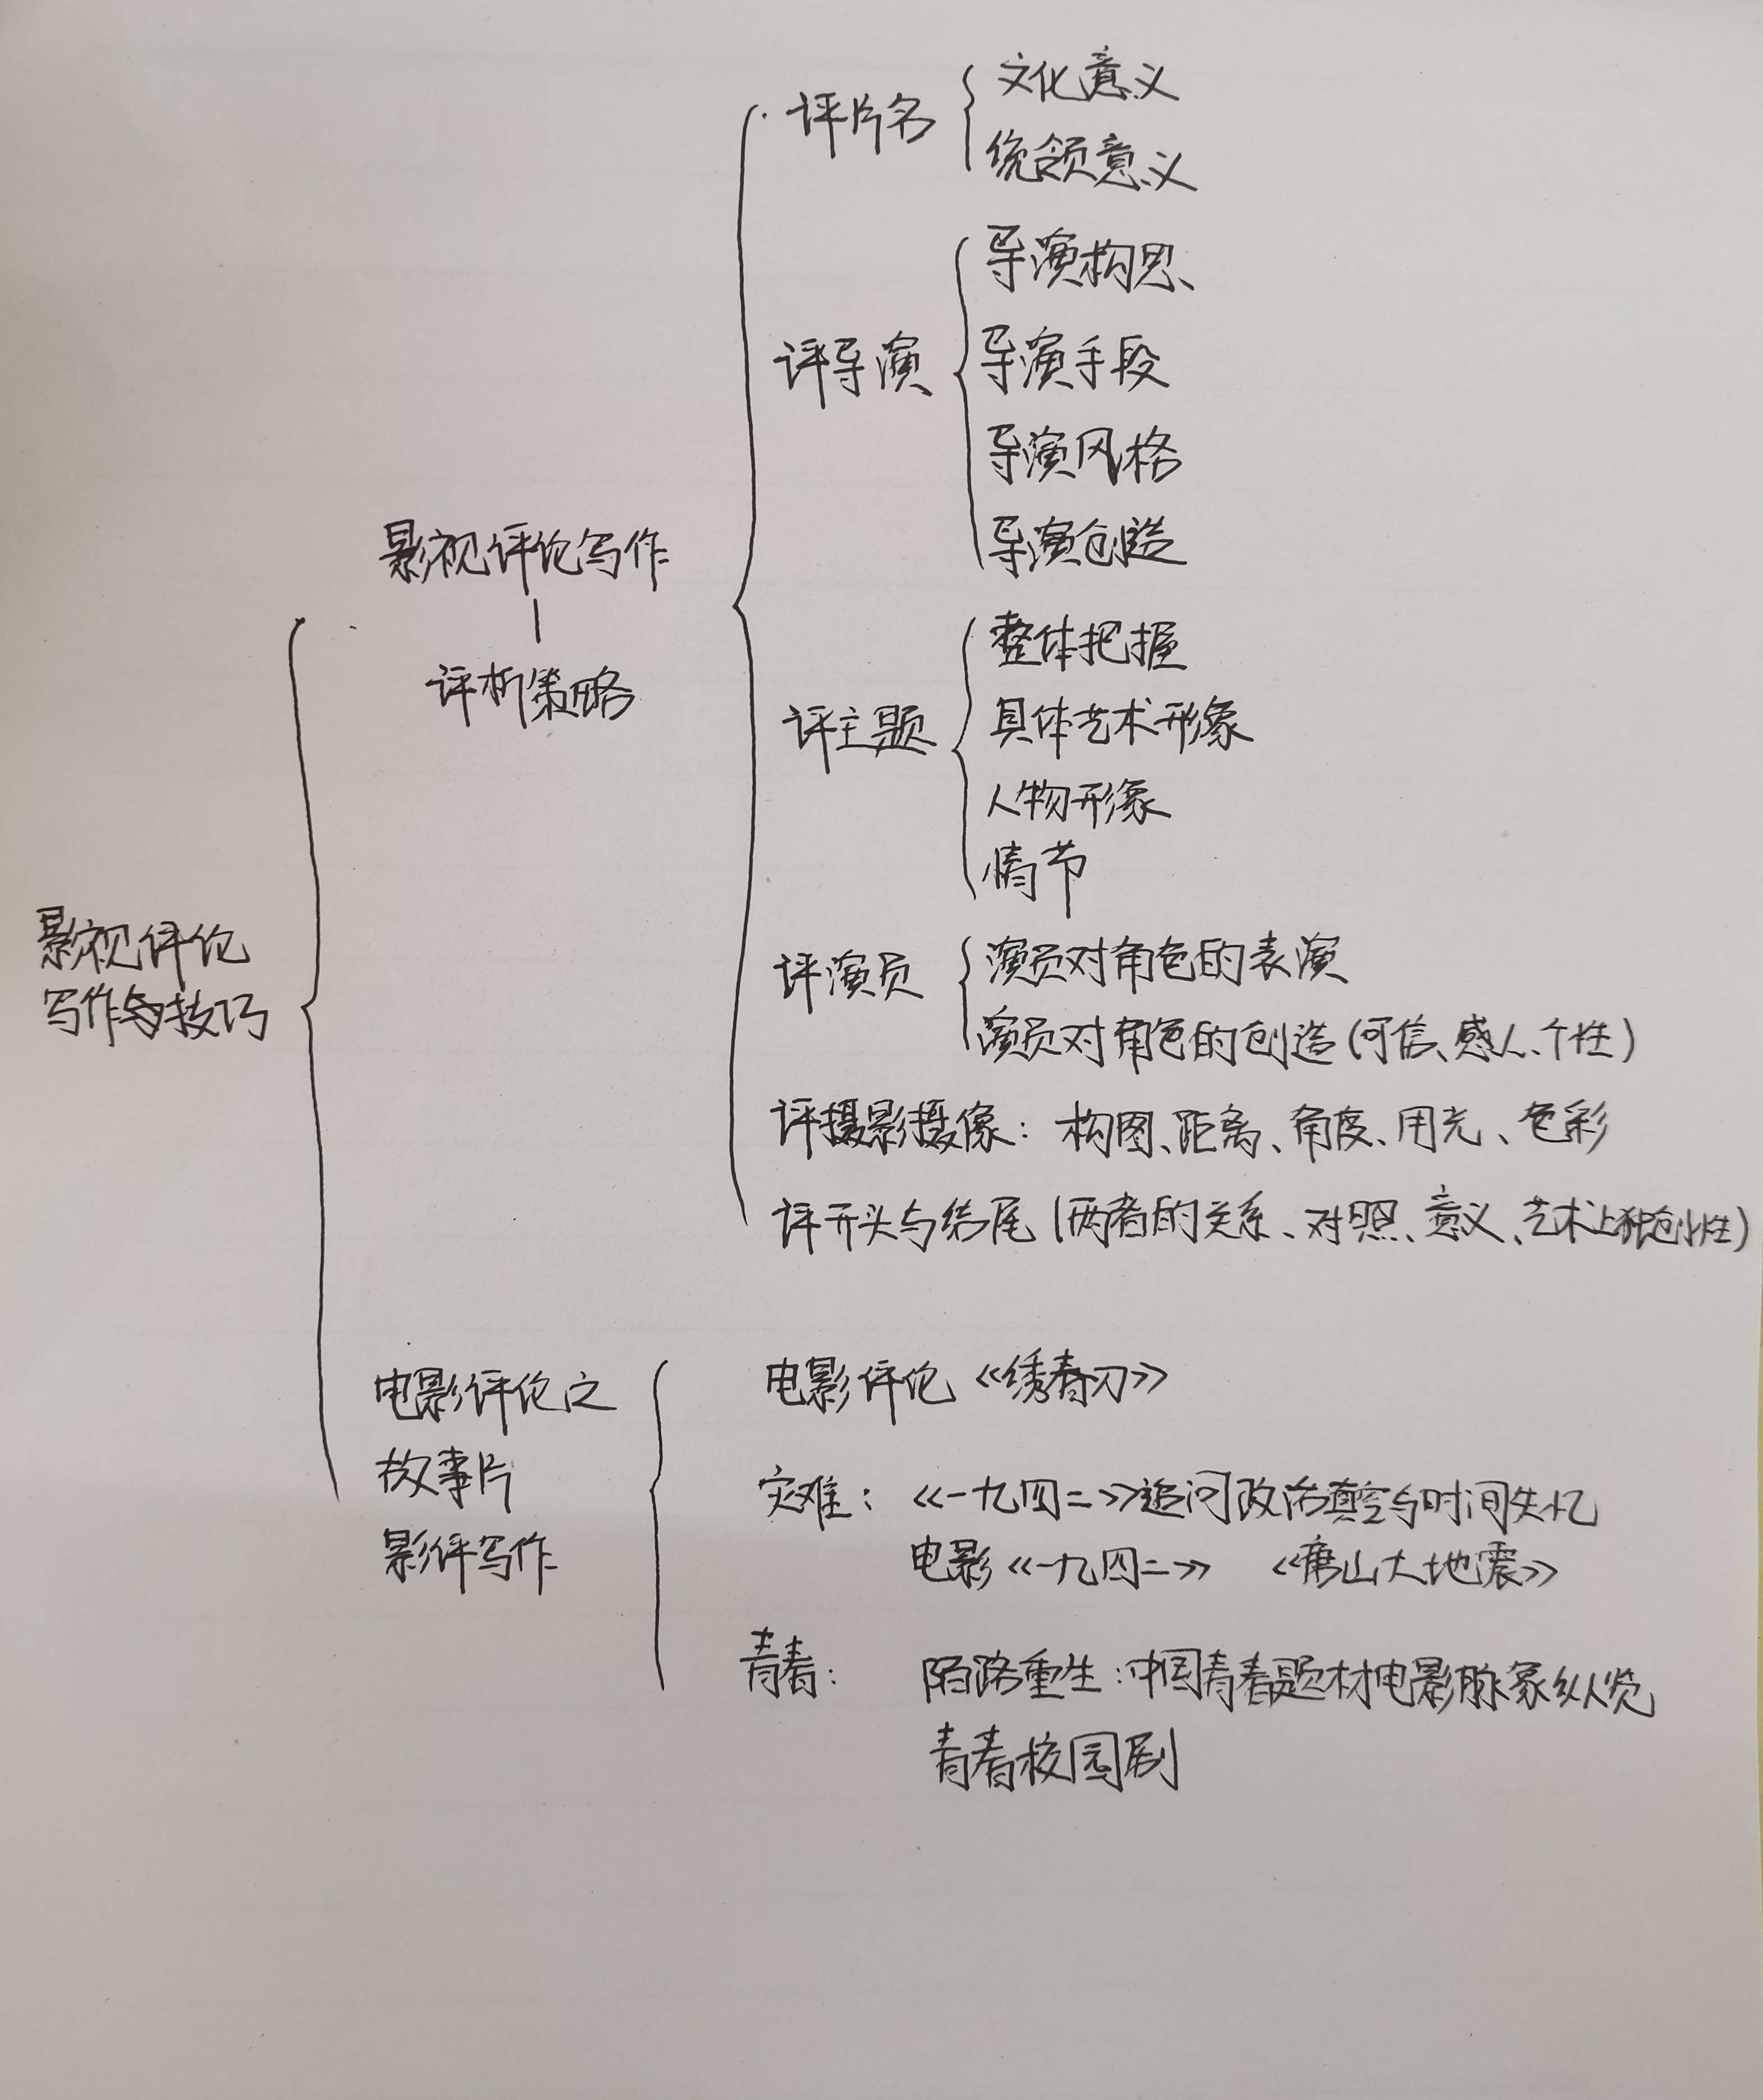 影视评论
写作与技巧
影视评论写作
评析策略
评片名
文化意义
统领意义
评导演
导演构思
导演手段
导演风格
导演创造
评主题
整体把握
具体艺术形象
人物形象
情节
评演员
演员对角色的表演
演员对角色的创造(可信、感人、个性)
评摄影摄像：构图、距离、角度、用光、色彩
评开头与结尾(两者的关系、对照、意义、艺术上独创性)
电影评论之
故事片
影评写作
电影评论《绣春刀》
灾难：《一九四二》追问政治真空与时间失忆
电影《一九四二》 《唐山大地震》
青春：陌路重生：中国青春题材电影脉象纵览
青春校园剧